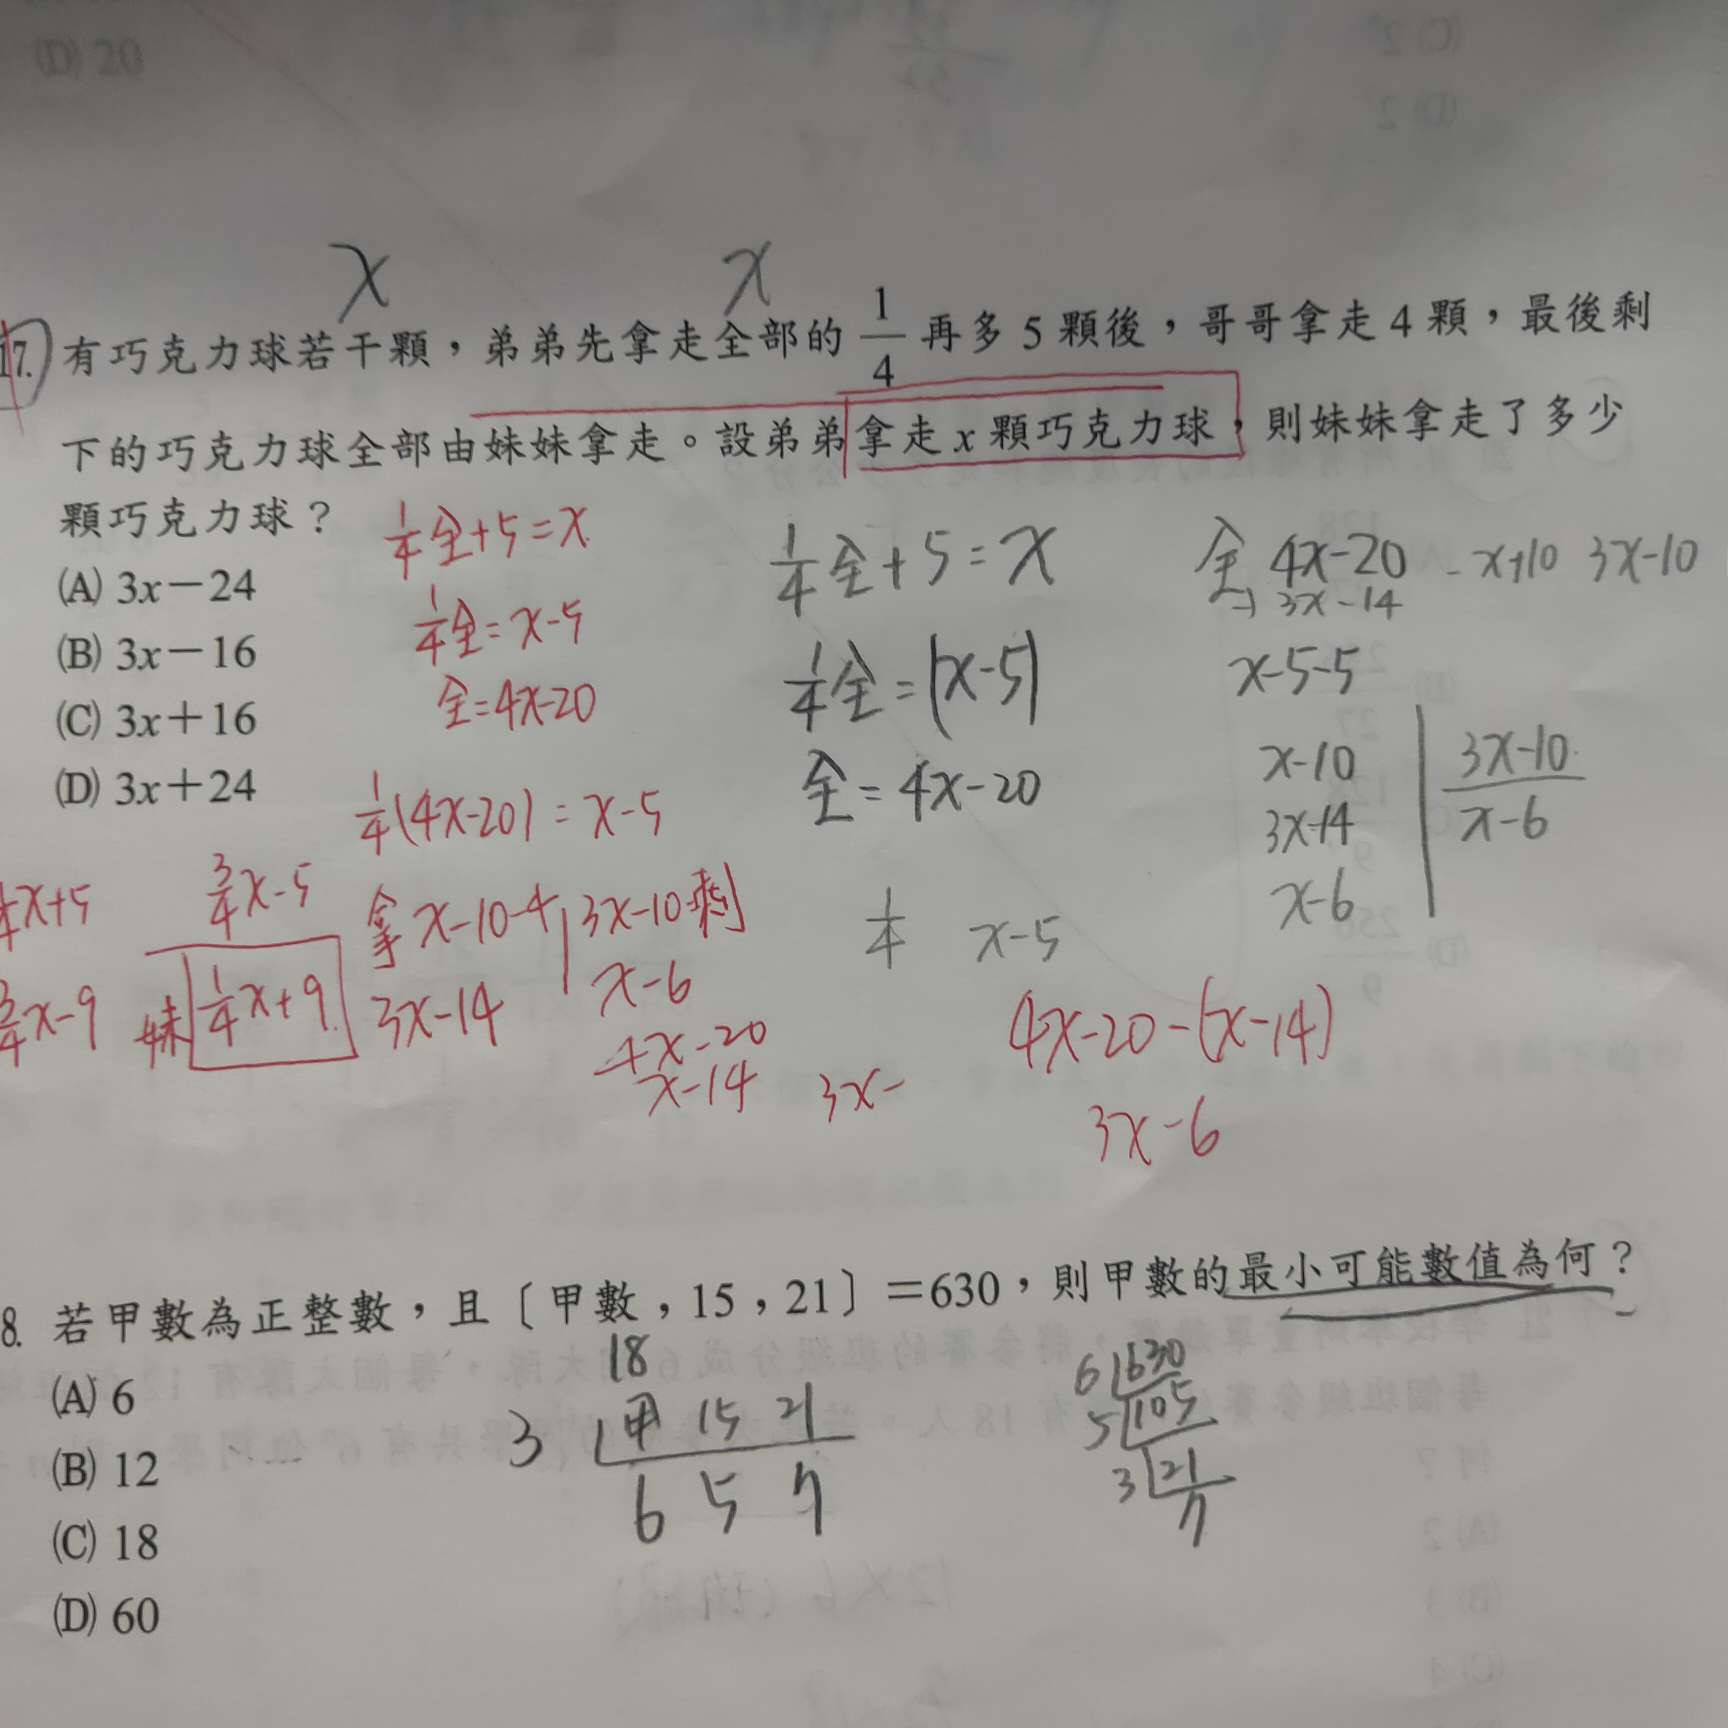 (D) 20
x x
17. 有巧克力球若干顆，弟弟先拿走全部的 1/4 再多 5 顆後，哥哥拿走 4 顆，最後剩
下的巧克力球全部由妹妹拿走。設弟弟拿走 x 顆巧克力球，則妹妹拿走了多少
顆巧克力球？
(A) 3x－24
(B) 3x－16
(C) 3x＋16
(D) 3x＋24
1/4全+5=x
1/4全=x-5
全=4x-20
1/4(4x-20)=x-5
1/4全+5=x
1/4全=(x-5)
全=4x-20
1/4 x-5
全 4x-20 - x+10 3x-10
→ 3x-14
x-5-5
x-10
3x-14
x-6
3x-10
x-6
x+5
3/4x-5
x-9
妹 1/4x+9
拿 x-10-4
3x-14
3x-10剩
x-6
4x-20
x-14
3x-
4x-20-(x-14)
3x-6
8. 若甲數為正整數，且〔甲數，15，21〕＝630，則甲數的最小可能數值為何？
(A) 6
(B) 12
(C) 18
(D) 60
18
3 甲 15 21
6 5 7
6 630
5 105
3 21
7